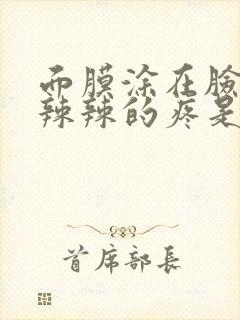 面膜涂在脸
辣辣的疼是
首席部长